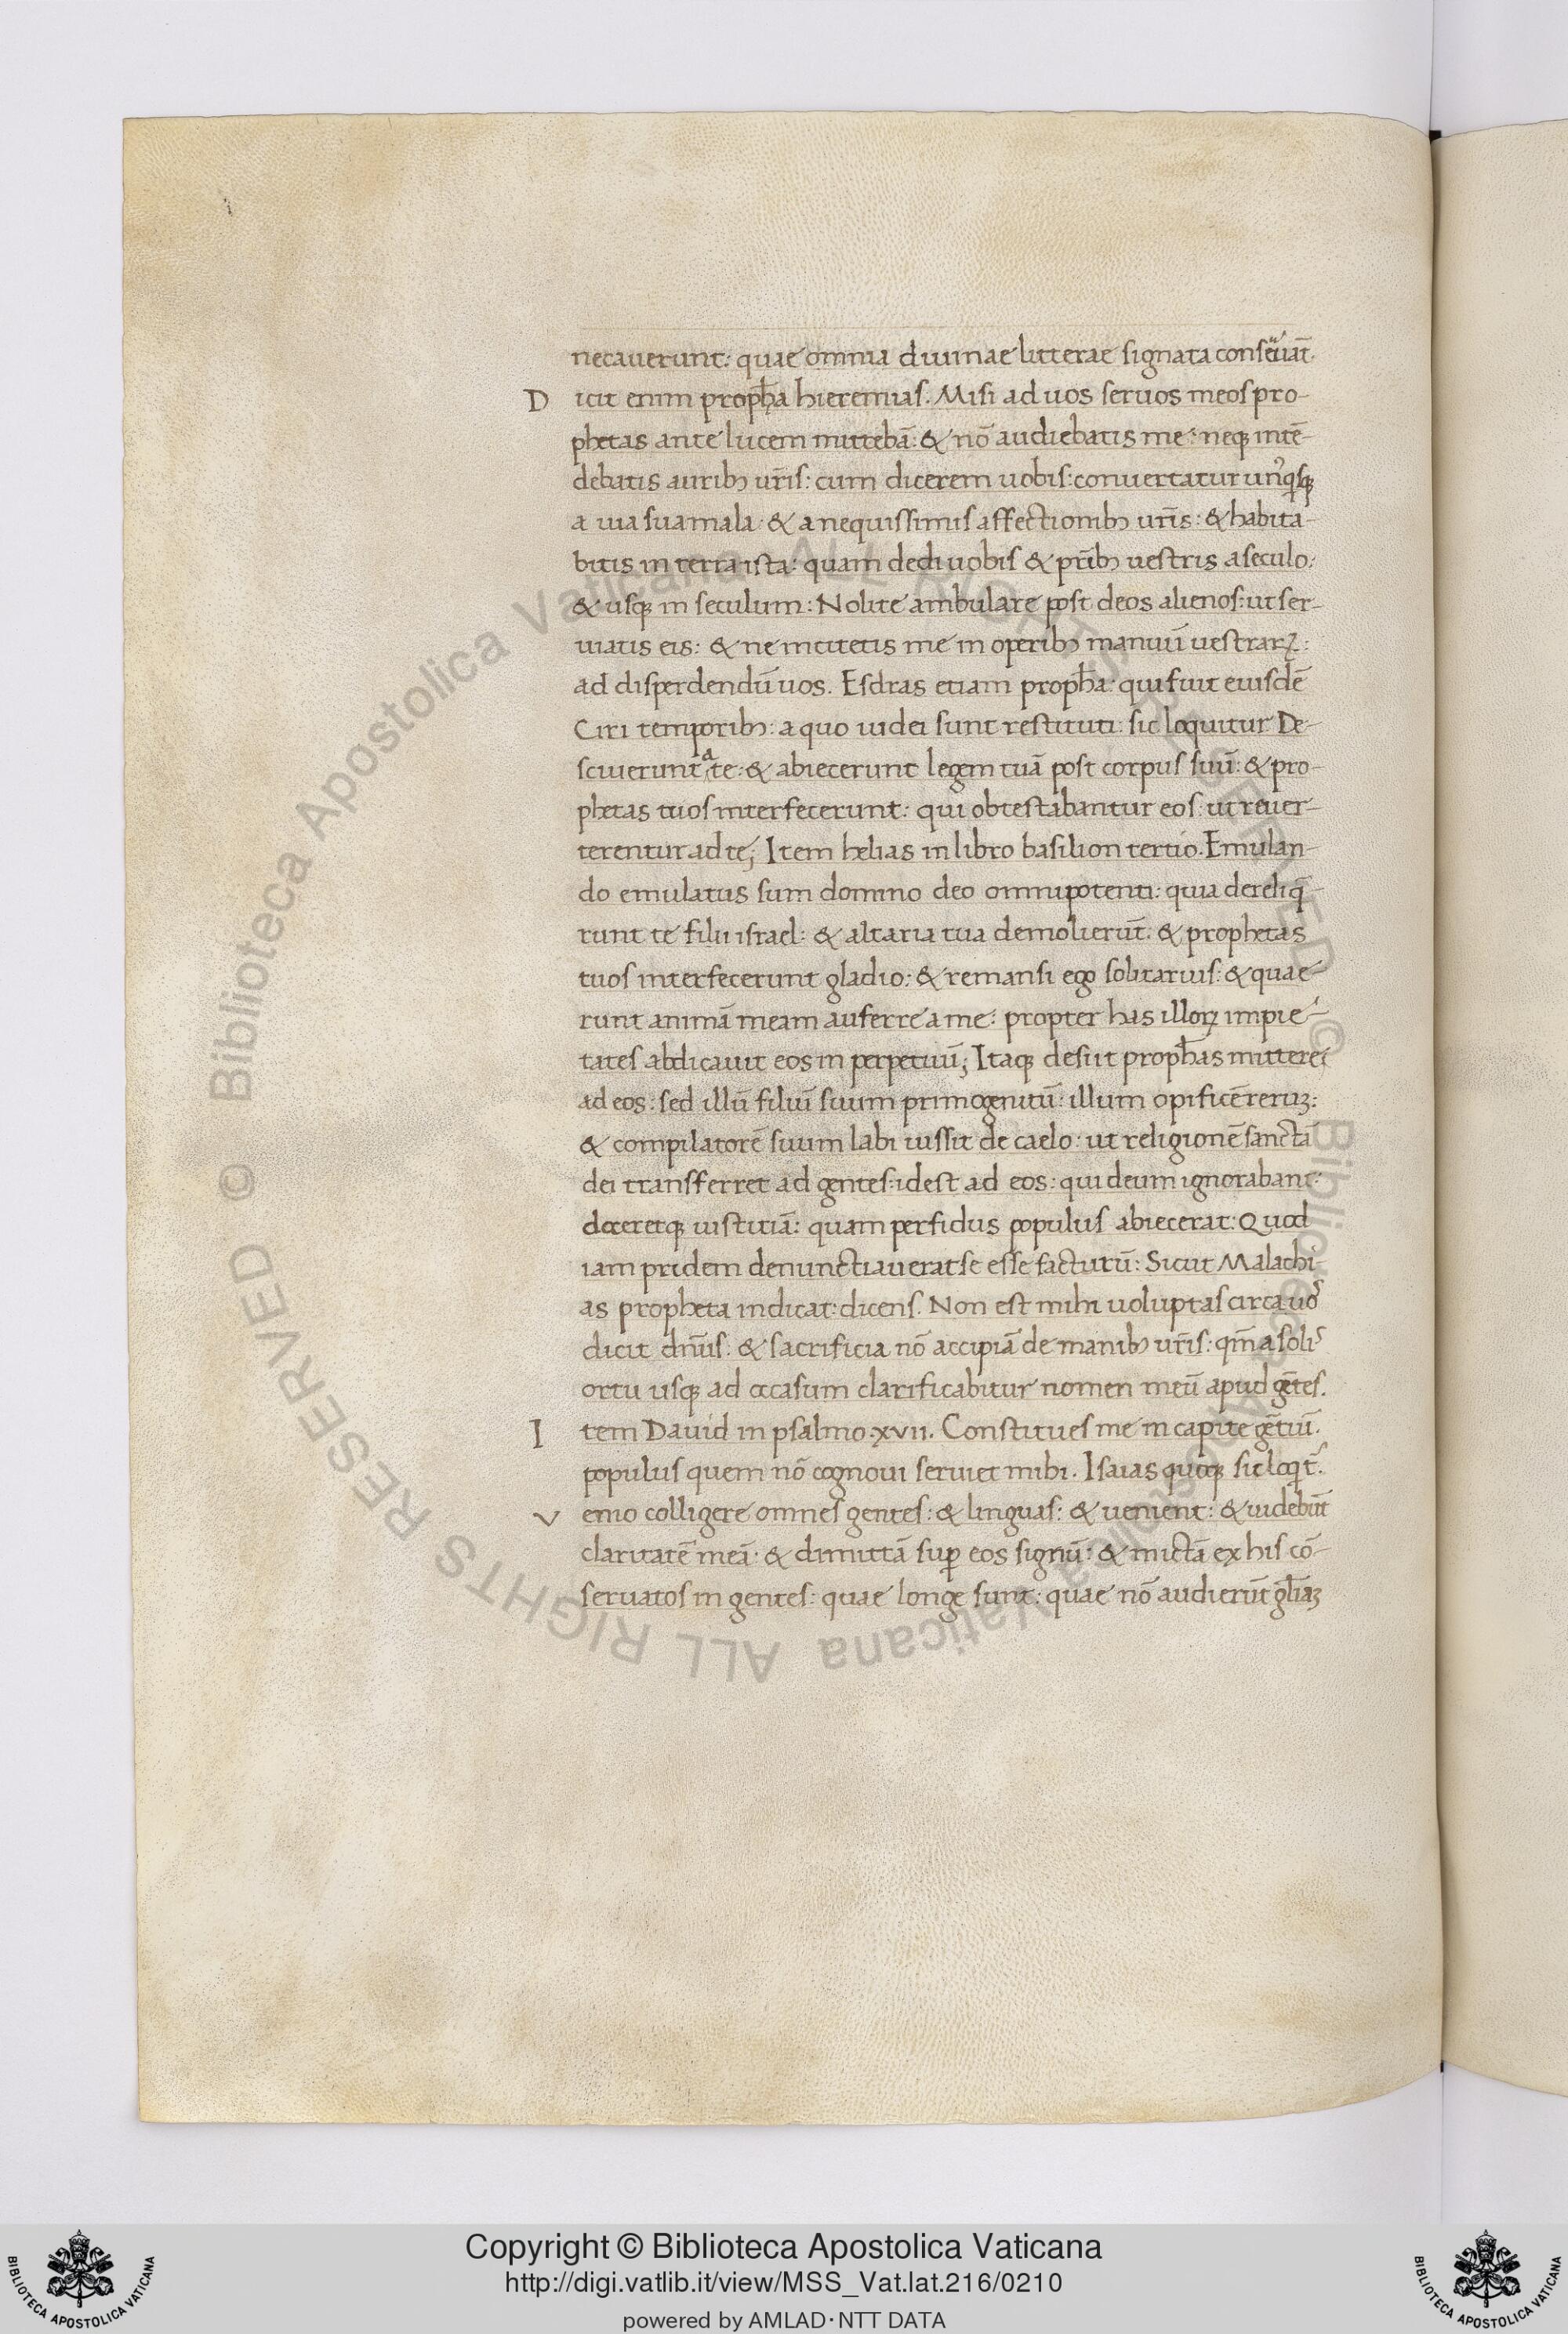 necauerunt: quae omnia diuinae litterae signata conseruat̄.
D icit enim prophā hieremias. Misi ad uos seruos meos pro-
phetas ante lucem mittebā: & nō audiebatis me: neq; intē-
debatis aurib; ur̄is: cum dicerem uobis: conuertatur unꝰqsq;
a uia sua mala: & a nequissimis affectionib; ur̄is: & habita-
bitis in terra ista: quam dedi uobis & pr̄ib; uestris a seculo:
& usq; in seculum: Nolite ambulare post deos alienos: ut ser-
uiatis eis: & ne incitetis me in operib; manuū uestrarꝝ:
ad disperdendū uos. Esdras etiam prophā: qui fuit eiusdē
Ciri temporib;: a quo iudei sunt restituti: sic loquitur. De-
sciuerunt a te: & abiecerunt legem tuā post corpus suū: & pro-
phetas tuos interfecerunt: qui obtestabantur eos: ut reuer-
terentur ad te; Item helias in libro basilion tertio. Emulan-
do emulatus sum domino deo omnipotenti: quia dereliq̄-
runt te filii israel: & altaria tua demolierūt: & prophetas
tuos interfecerunt gladio: & remansi ego solitarius: & quae-
runt animā meam auferre a me: propter has illorꝝ impie-
tates abdicauit eos in perpetuū; Itaq; desiit prophās mittere
ad eos: sed illū filiū suum primogenitū: illum opificē rerum:
& compilatorē suum labi iussit de caelo: ut religionē sanctā
dei transferret ad gentes: idest ad eos: qui deum ignorabant:
doceretq; iustitiā: quam perfidus populus abiecerat: Quod
iam pridem denunctiauerat se esse facturū: Sicut Malachi-
as propheta indicat: dicens. Non est mihi uoluptas circa uos
dicit dn̄us: & sacrificia nō accipiā de manib; ur̄is: qm̄ a solis
ortu usq; ad occasum clarificabitur nomen meū apud gētes.
I tem Dauid in psalmo .xvii. Constitues me in capite gētiū.
populus quem nō cognoui seruiet mihi. Isaias quoq; sic loqt̄.
V enio colligere omnes gentes: & linguas: & uenient: & uidebūt
claritatē meā: & dimittā sup̄ eos signū: & mictā ex his cō-
seruatos in gentes: quae longe sunt: quae nō audierūt gl̄iaꝫ
© Biblioteca Apostolica Vaticana ALL RIGHTS RESERVED © Biblioteca Apostolica Vaticana ALL RIGHTS RESERVED
Copyright © Biblioteca Apostolica Vaticana
http://digi.vatlib.it/view/MSS_Vat.lat.216/0210
powered by AMLAD·NTT DATA
BIBLIOTECA APOSTOLICA VATICANA
BIBLIOTECA APOSTOLICA VATICANA